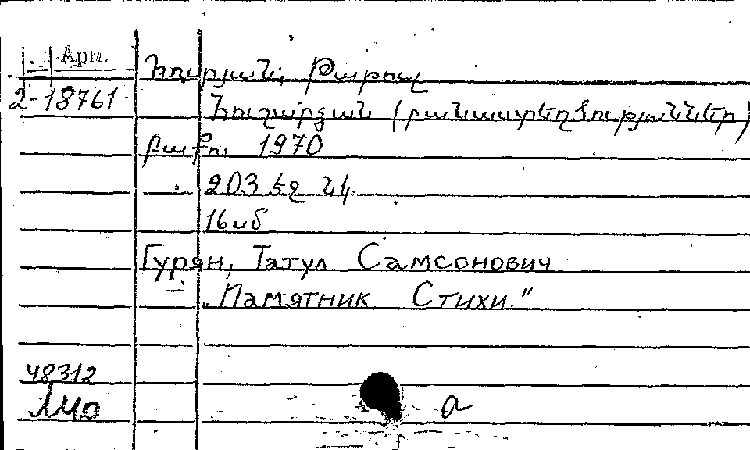 Арм.
2-18761
Հուրյան, Թաթուլ
Հուշարձան (բանաստեղծություններ)
Բաքու 1970
203 էջ նկ.
16սմ
Гурян, Татул Самсонович
„Памятник. Стихи."
48312
а